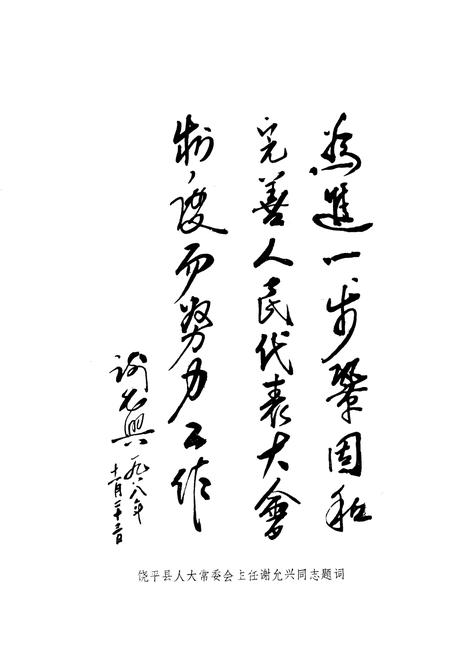 为進一步鞏固和
完善人民代表大會
制度而努力工作
谢允興
一九八八年
十一月二十二日
饶平县人大常委会主任谢允兴同志题词